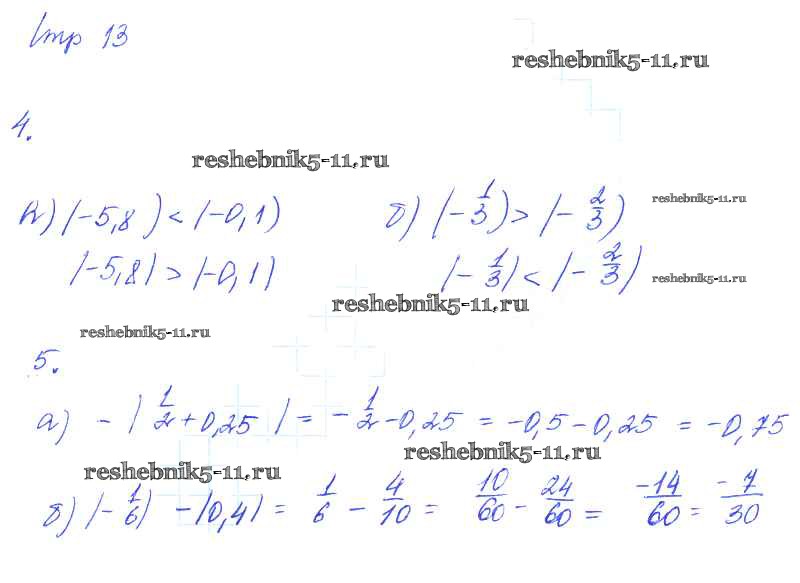 Стр 13
reshebnik5-11.ru
4.
reshebnik5-11.ru
а) (-5,8) < (-0,1) б) (-1/3) > (-2/3) reshebnik5-11.ru
|-5,8| > |-0,1| |-1/3| < |-2/3| reshebnik5-11.ru
reshebnik5-11.ru
reshebnik5-11.ru
5.
а) -|1/2+0,25| = -1/2-0,25 = -0,5-0,25 = -0,75
reshebnik5-11.ru
reshebnik5-11.ru
б) |-1/6| -|0,4| = 1/6 - 4/10 = 10/60 - 24/60 = -14/60 = -7/30